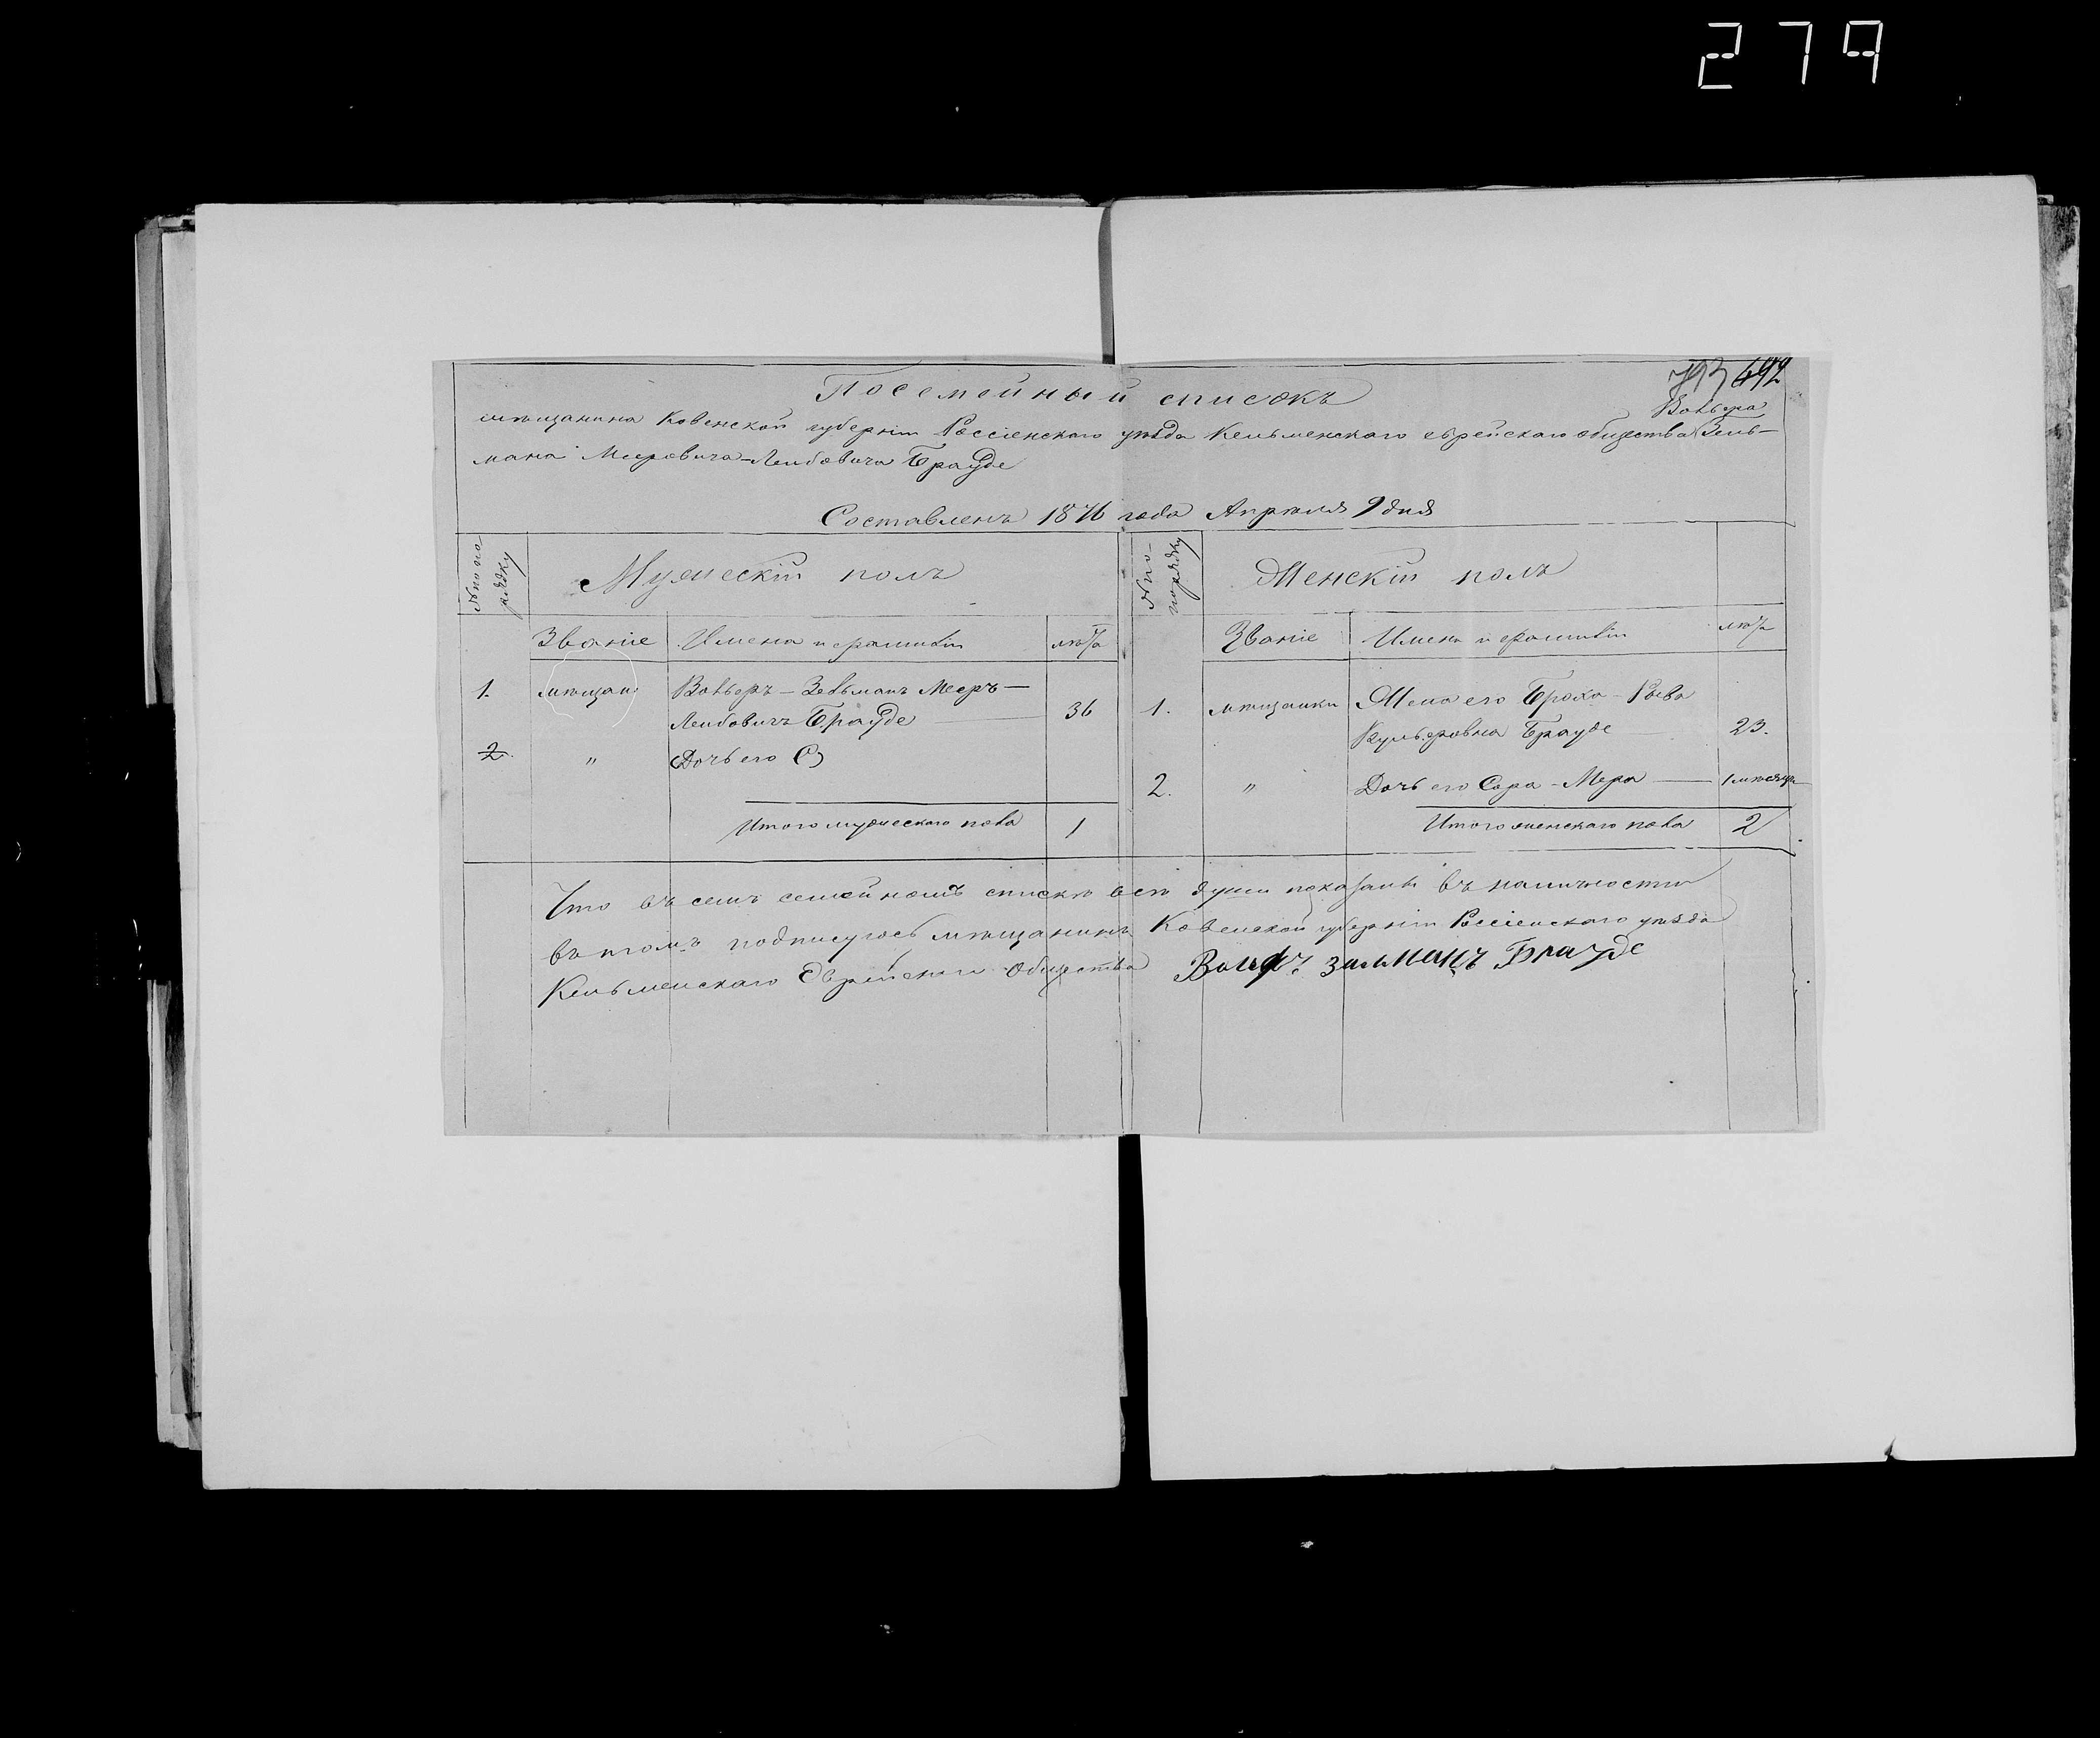 279
793 692
Посемейный списокъ
Вольфа
мѣщанина Ковенской губерніи Россіенского уѣзда Кельменского еврейского общества Зель-
мана Мееровича-Лейбовича Брауде
Составленъ 1876 года Апрѣля 9 дня
№ по по
рядку
Мужескій полъ
№ по-
порядку
Женскій полъ
Званіе Имена и фамиліи лѣта
Званіе Имена и фамиліи лѣта
1. мѣщан. Вольфъ-Зельманъ Мееръ-
Лейбовичъ Брауде 36
1. мѣщанки Жена его Броха-Рыва
Брауде 23.
2. " Дочь его С
2. " Дочь его Сора-Мера 1 мѣсяцъ
Итого мужескаго пола 1
Итого женскаго пола 2
Что въ семъ семейномъ спискѣ всѣ души показаны въ наличности
въ томъ подписуюсь мѣщанинъ Ковенской губерніи Россіенскаго уѣзда
Кельменскаго Еврейскаго Общества Вольфъ Зельманъ Брауде